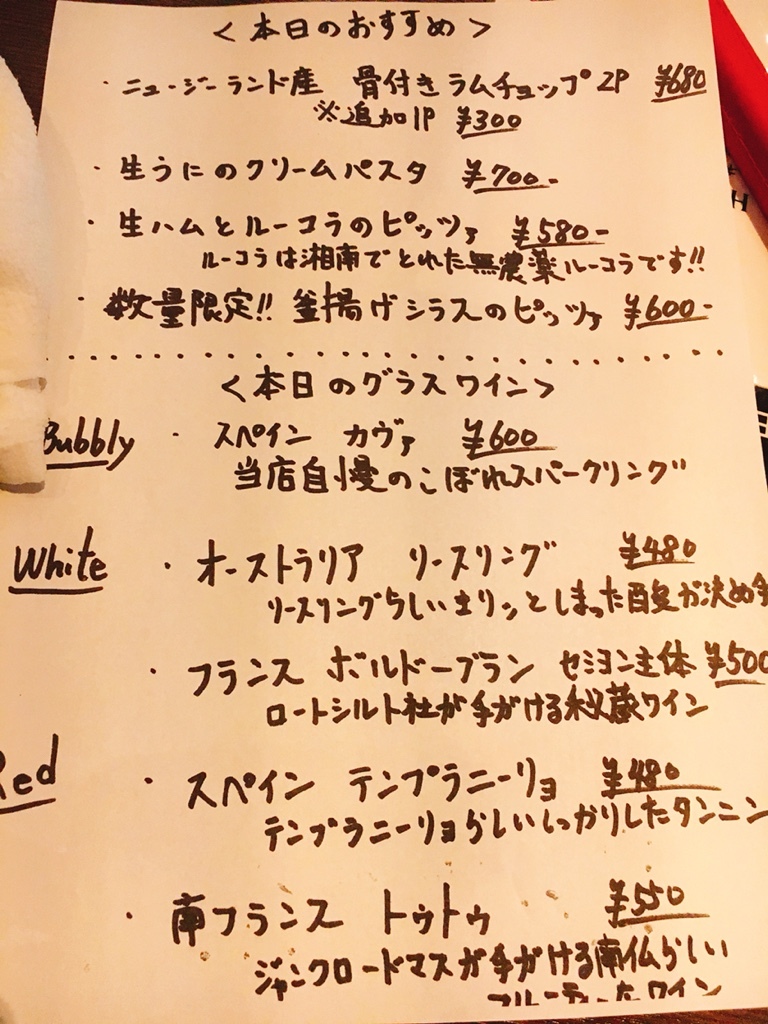 <本日のおすすめ>
・ニュージーランド産 骨付きラムチョップ2P ¥680
※追加1P ¥300
・生うにのクリームパスタ ¥700-
・生ハムとルーコラのピッツァ ¥580-
ルーコラは湘南でとれた無農薬ルーコラです!!
・数量限定!! 釜揚げシラスのピッツァ ¥600-
<本日のグラスワイン>
Bubbly ・スペイン カヴァ ¥600
当店自慢のこぼれスパークリング
White ・オーストラリア リースリング ¥480
リースリングらしいキリッとしまった酸が決め手
・フランス ボルドーブラン セミヨン主体 ¥500
ロートシルト社が手がける秘蔵ワイン
Red ・スペイン テンプラニーリョ ¥480
テンプラニーリョらしいしっかりしたタンニン
・南フランス トゥトゥ ¥550
ジャンクロードマスが手がける南仏らしい
フルーティーなワイン
H